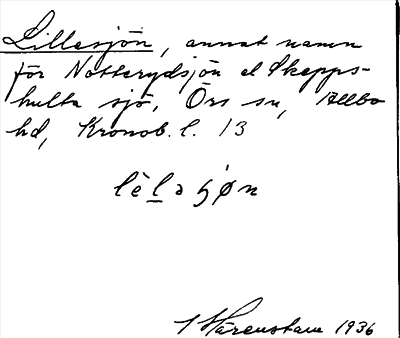 Lillesjön, annat namn
för Notterydsjön el Skepps-
hulta sjö, Örs sn, Allbo
hd, Kronob. l. 13
lè l ə ɧ ø n
Härenstam 1936